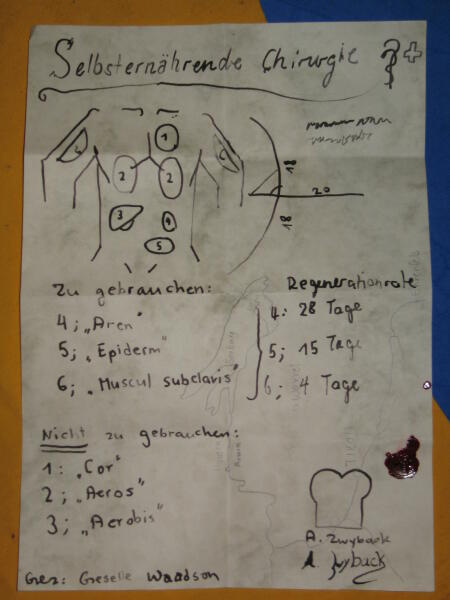 Selbsternährende Chirurgie
1
2
2
3
4
5
18
20
18
Zu gebrauchen:
4; „Aren"
5; „Epiderm"
6; „Muscul subclaris"
Regenerationrate
4: 28 Tage
5; 15 Tage
6; 4 Tage
Nicht zu gebrauchen:
1: „Cor"
2; „Aeros"
3; „Aerobis"
A. Zwyback
A. Zwyback
Gez: Geselle Waadson